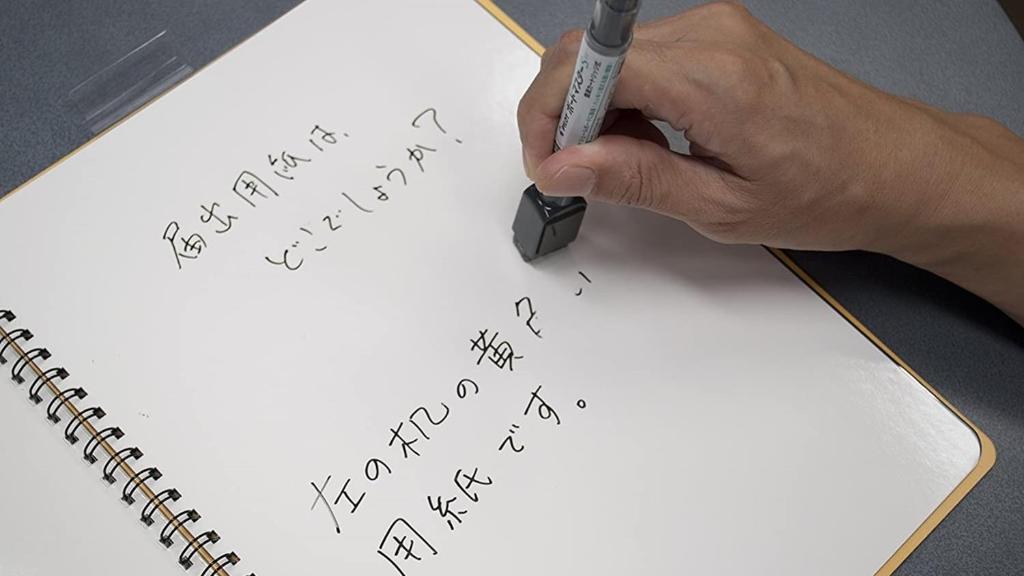 届出用紙は、
どこでしょうか？
左の机の黄色い
用紙です。
ボードマスター